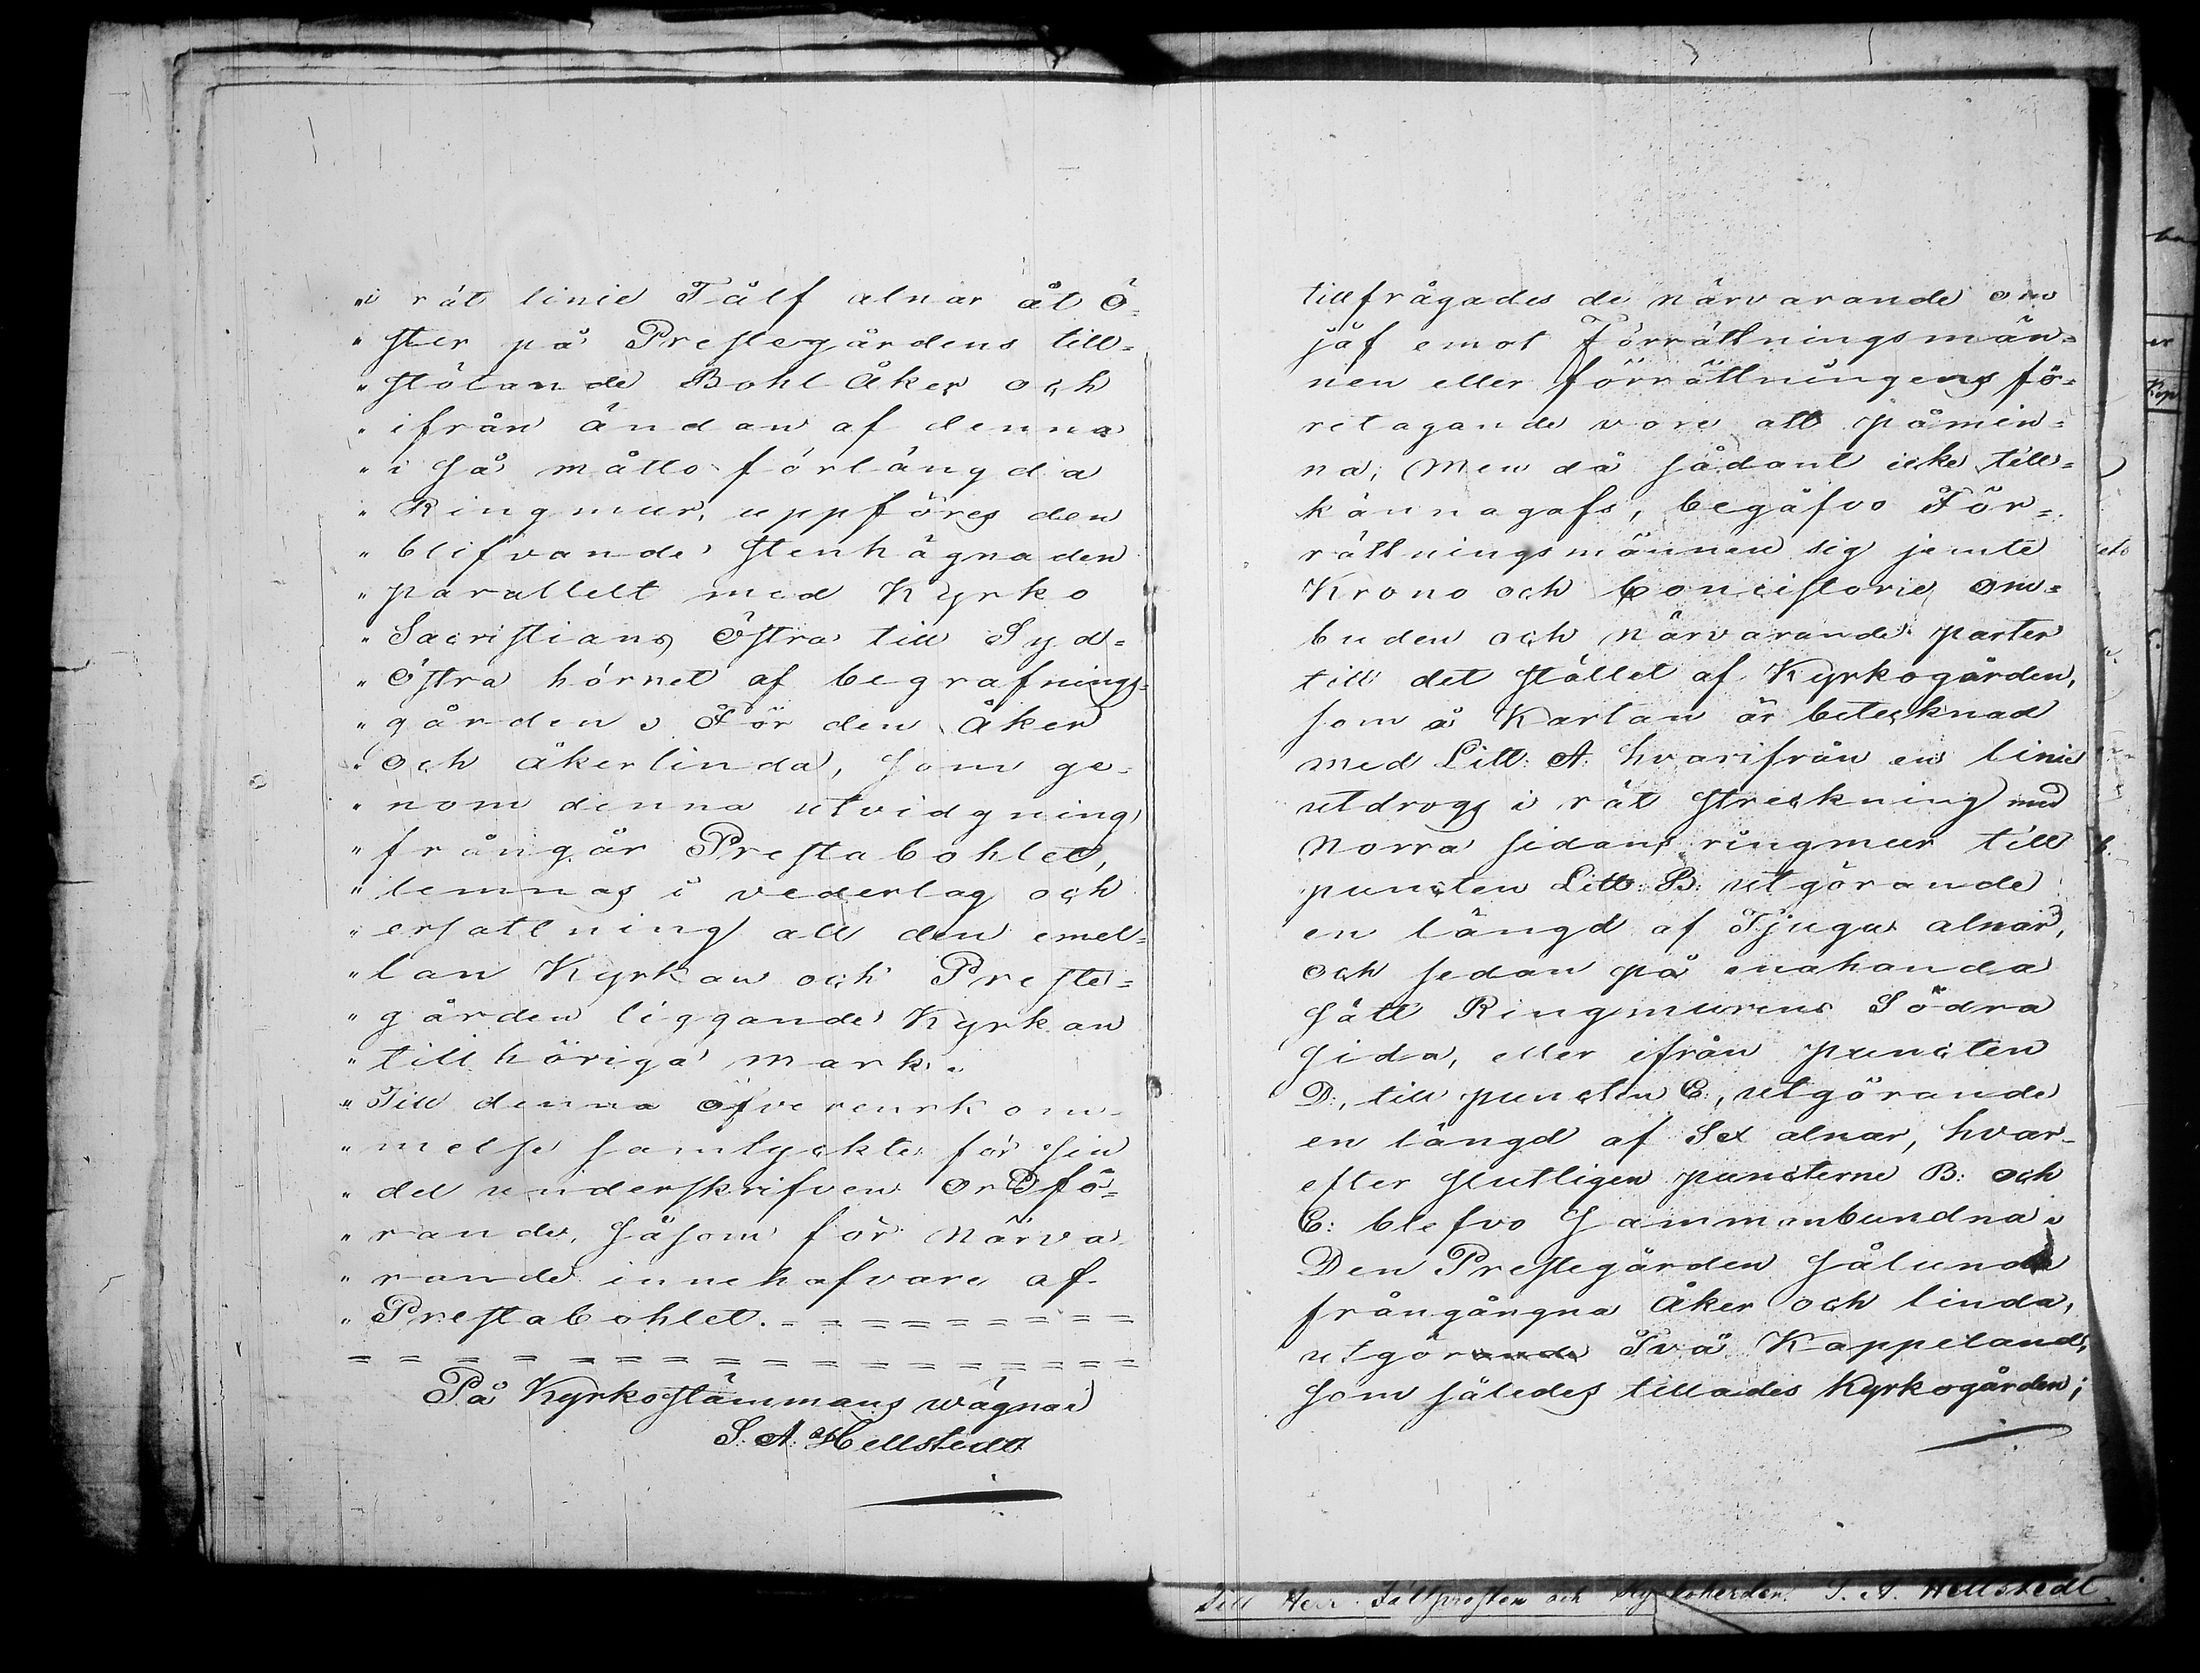 "i rät linie Tålf alnar åt Ö=
" ster på Prestegårdens till=
" stötande Bohl Åker och
" ifrån ändan af denna
" i så måtto förlängda
" Ringmur, uppföres den
" blifvande stenhägnaden
" parallelt med Kyrko
" Sacristians Östra till Syd=
" östra hörnet af begrafnings=
" gården. För den åker
" och åkerlinda, som ge=
" nom denna utvidgning
" frångår Prestabohlet,
" lemnas i vederlag och
" ersättning all den emel=
" lan Kyrkan och Preste=
" gården liggande Kyrkan
" tillhöriga mark.
" Till denna öfverensk om=
" melse samtyckte för sin
" del underskrifven Ordfö=
" rande, såsom för närva
" rande innehafvare af
" Prestabohlet. = = = = = = = = =
= = = = = = = = = = = = = = = =
På Kyrkostämmans wägnar
S. A. Hellstedt
tillfrågades de närvarande om
jäf emot Förrättningsmän=
nen eller förrättningens fö=
retagande vore att påmin=
na; Men då sådant icke till=
kännagafs, begåfvo För=
rättningsmännen sig jemte
Krono och Concistorie om=
buden och närvarande parter
till det stället af Kyrkogården,
som å Kartan är betecknad
med Litt: A: hvarifrån en linie
utdrogs i rät streckning med
Norra sidans ringmur till
puncten Litt: B: utgörande
en längd af Tjugu alnar,
och sedan på enahanda
sätt Ringmurens Södra
sida, eller ifrån puncten
D:, till puncten C:, utgörande
en längd af Sex alnar, hvar=
efter slutligen puncterne B: och
C: blefvo sammanbundna.
Den Prestegården sålunda
frångångna Åker och linda,
utgörande Två Kappeland,
som således tillades Kyrkogården;
Till Herr Fältprosten och Kyrkoherden S. A. Hellstedt